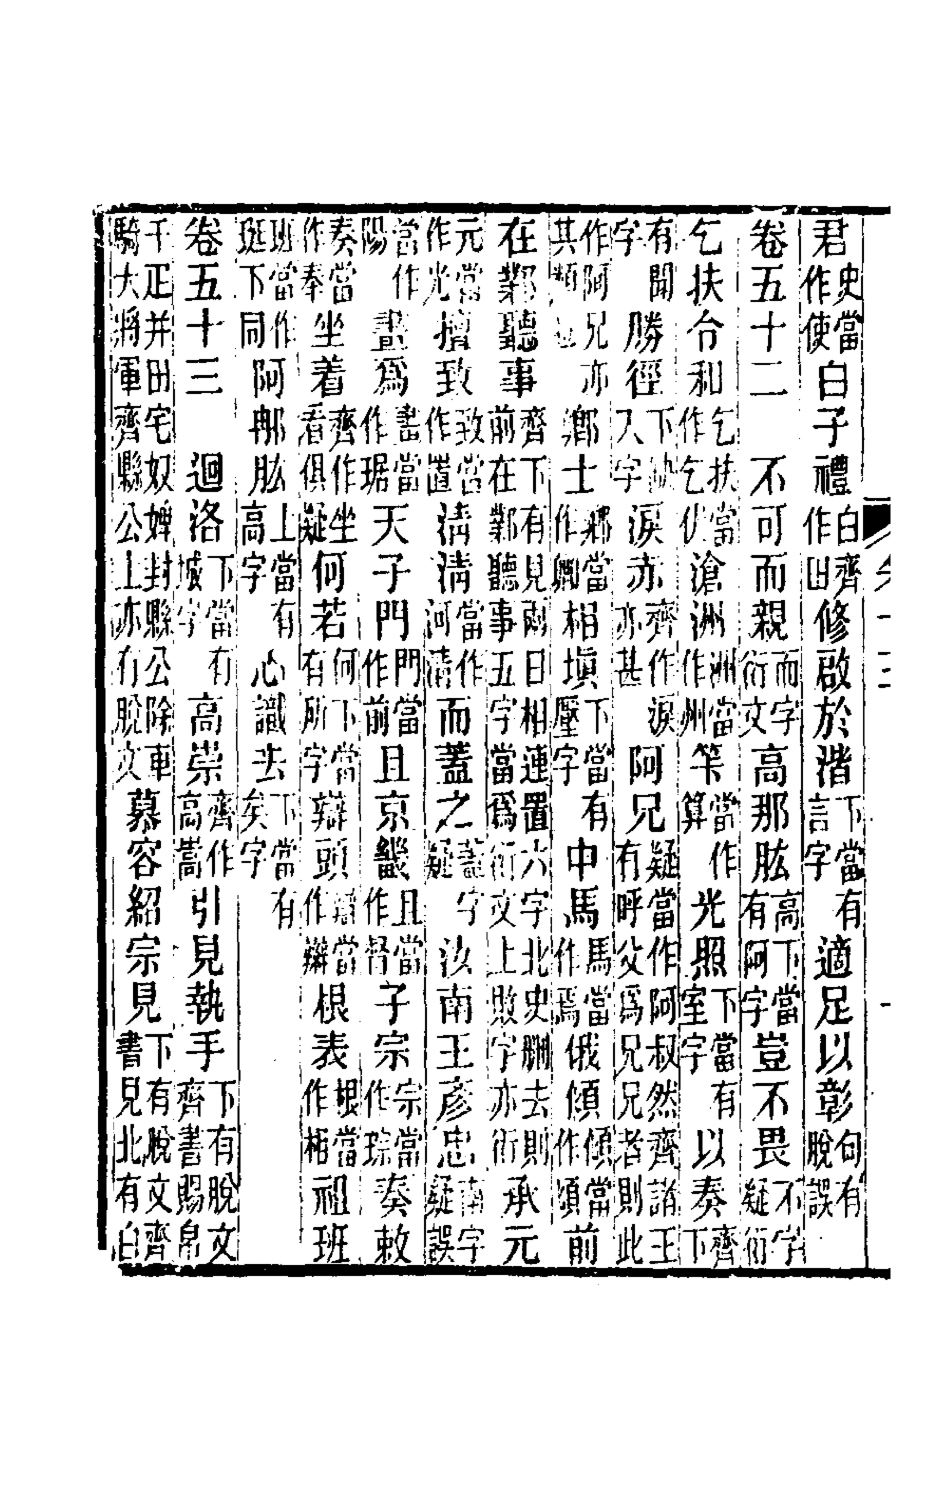 君史當作使白子禮白齊作田修啟於湝下當有言字適足以彰句有脫誤
卷五十二　不可而親而字衍文高那肱高下當有阿字豈不畏不字疑衍
乞扶令和乞扶當作乞伏滄洲洲當作州笇當作算光照下當有室字以奏齊下
有聞字勝徑下缺入字淚亦齊作淚亦甚阿兄疑當作阿叔然齊諸王有呼父爲兄兄者則此
作阿兄亦其類也鄉士鄉當作卿相塡下當有壓字中馬馬當作焉俄傾傾當作頃前
在鄴聽事齊下有見兩日相連置六字北史刪去則前在鄴聽事五字當爲衍文上敗字亦衍承元
元當作光擅致致當作置淸淸當作河淸而蓋之蓋字疑汝南王彥忠南字疑誤
當作陽晝爲晝當作琚天子門門當作前且京畿且當作督子宗宗當作琮奏敕
奏當作奉坐着齊作坐看俱疑何若何下當有所字辯頭辯當作辮根表根當作相祖班
班當作珽下同阿冉肱上當有高字心識去下當有矣字
卷五十三　迴洛下當有城字高崇齊作高嵩引見執手下有脫文齊書賜帛
千疋并田宅奴婢封縣公除車騎大將軍齊縣公上亦有脫文慕容紹宗見下有脫文齊書見北有白